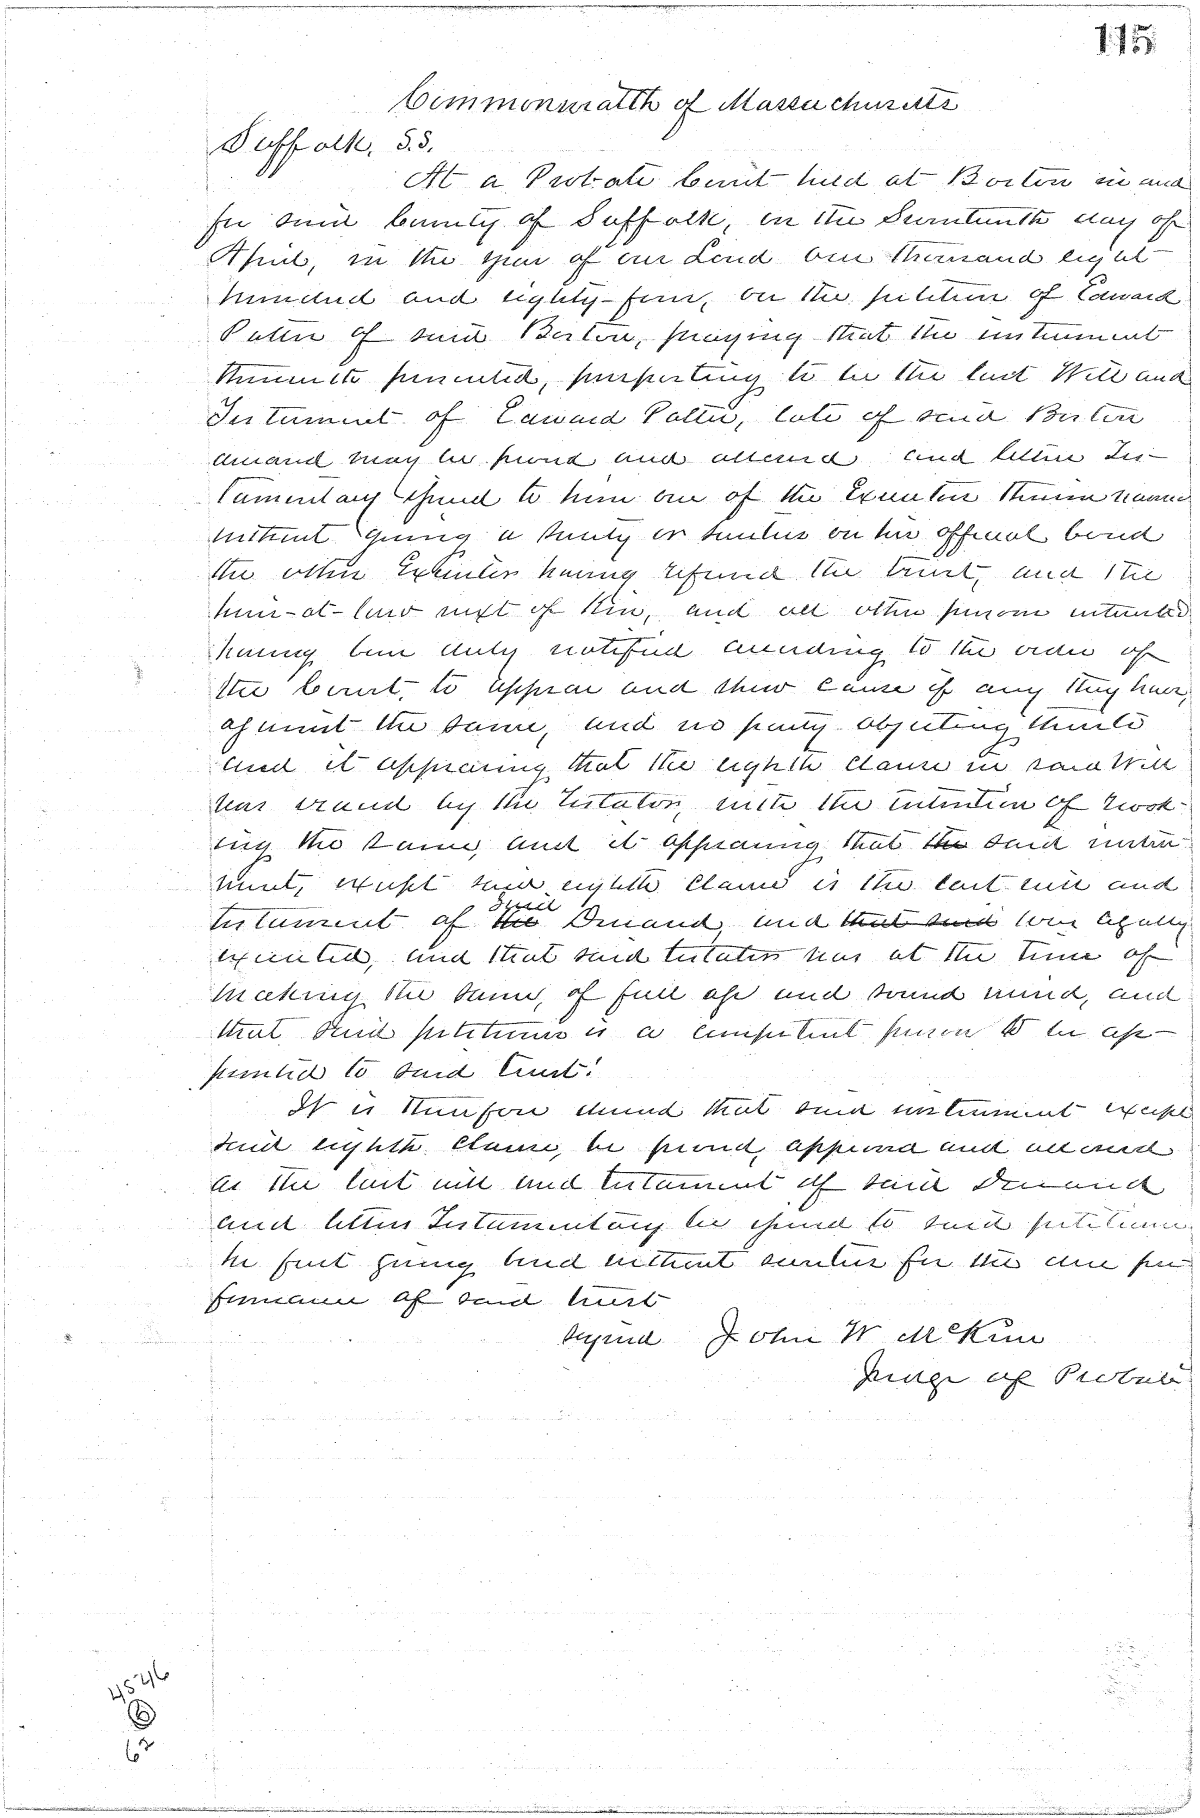 115
Commonwealth of Massachusetts
Suffolk, S.S.
At a Probate Court held at Boston in and
for said County of Suffolk, on the Seventeenth day of
April, in the year of our Lord one thousand eight
hundred and eighty-four, on the petition of Edward
Potter of said Boston, praying that the instrument
therewith presented, purporting to be the last Will and
Testament of Edward Potter, late of said Boston
deceased may be proved and allowed and letters Tes-
tamentary issued to him one of the Executors therein named
without giving a surety or sureties on his official bond
the other Executors having refused the trust, and the
heirs-at-law next of Kin, and all other persons interested
having been duly notified according to the order of
the Court, to appear and show cause if any they have,
against the same, and no party objecting thereto
and it appearing that the eighth clause in said Will
was erased by the Testator, with the intention of revok-
ing the same, and it appearing that the said instru-
ment, except said eighth clause is the last will and
said
testament of the Deceased, and that said was legally
executed, and that said testator was at the time of
making the same, of full age and sound mind, and
that said petitioner is a competent person to be ap-
pointed to said trust:
It is therefore decreed that said instrument except
said eighth clause, be proved, approved and allowed
as the last will and testament of said Deceased
and letters Testamentary be issued to said petitioner
he first giving bond without sureties for the due per-
formance of said trust
signed John W McKim
Judge of Probate
4546
B
62